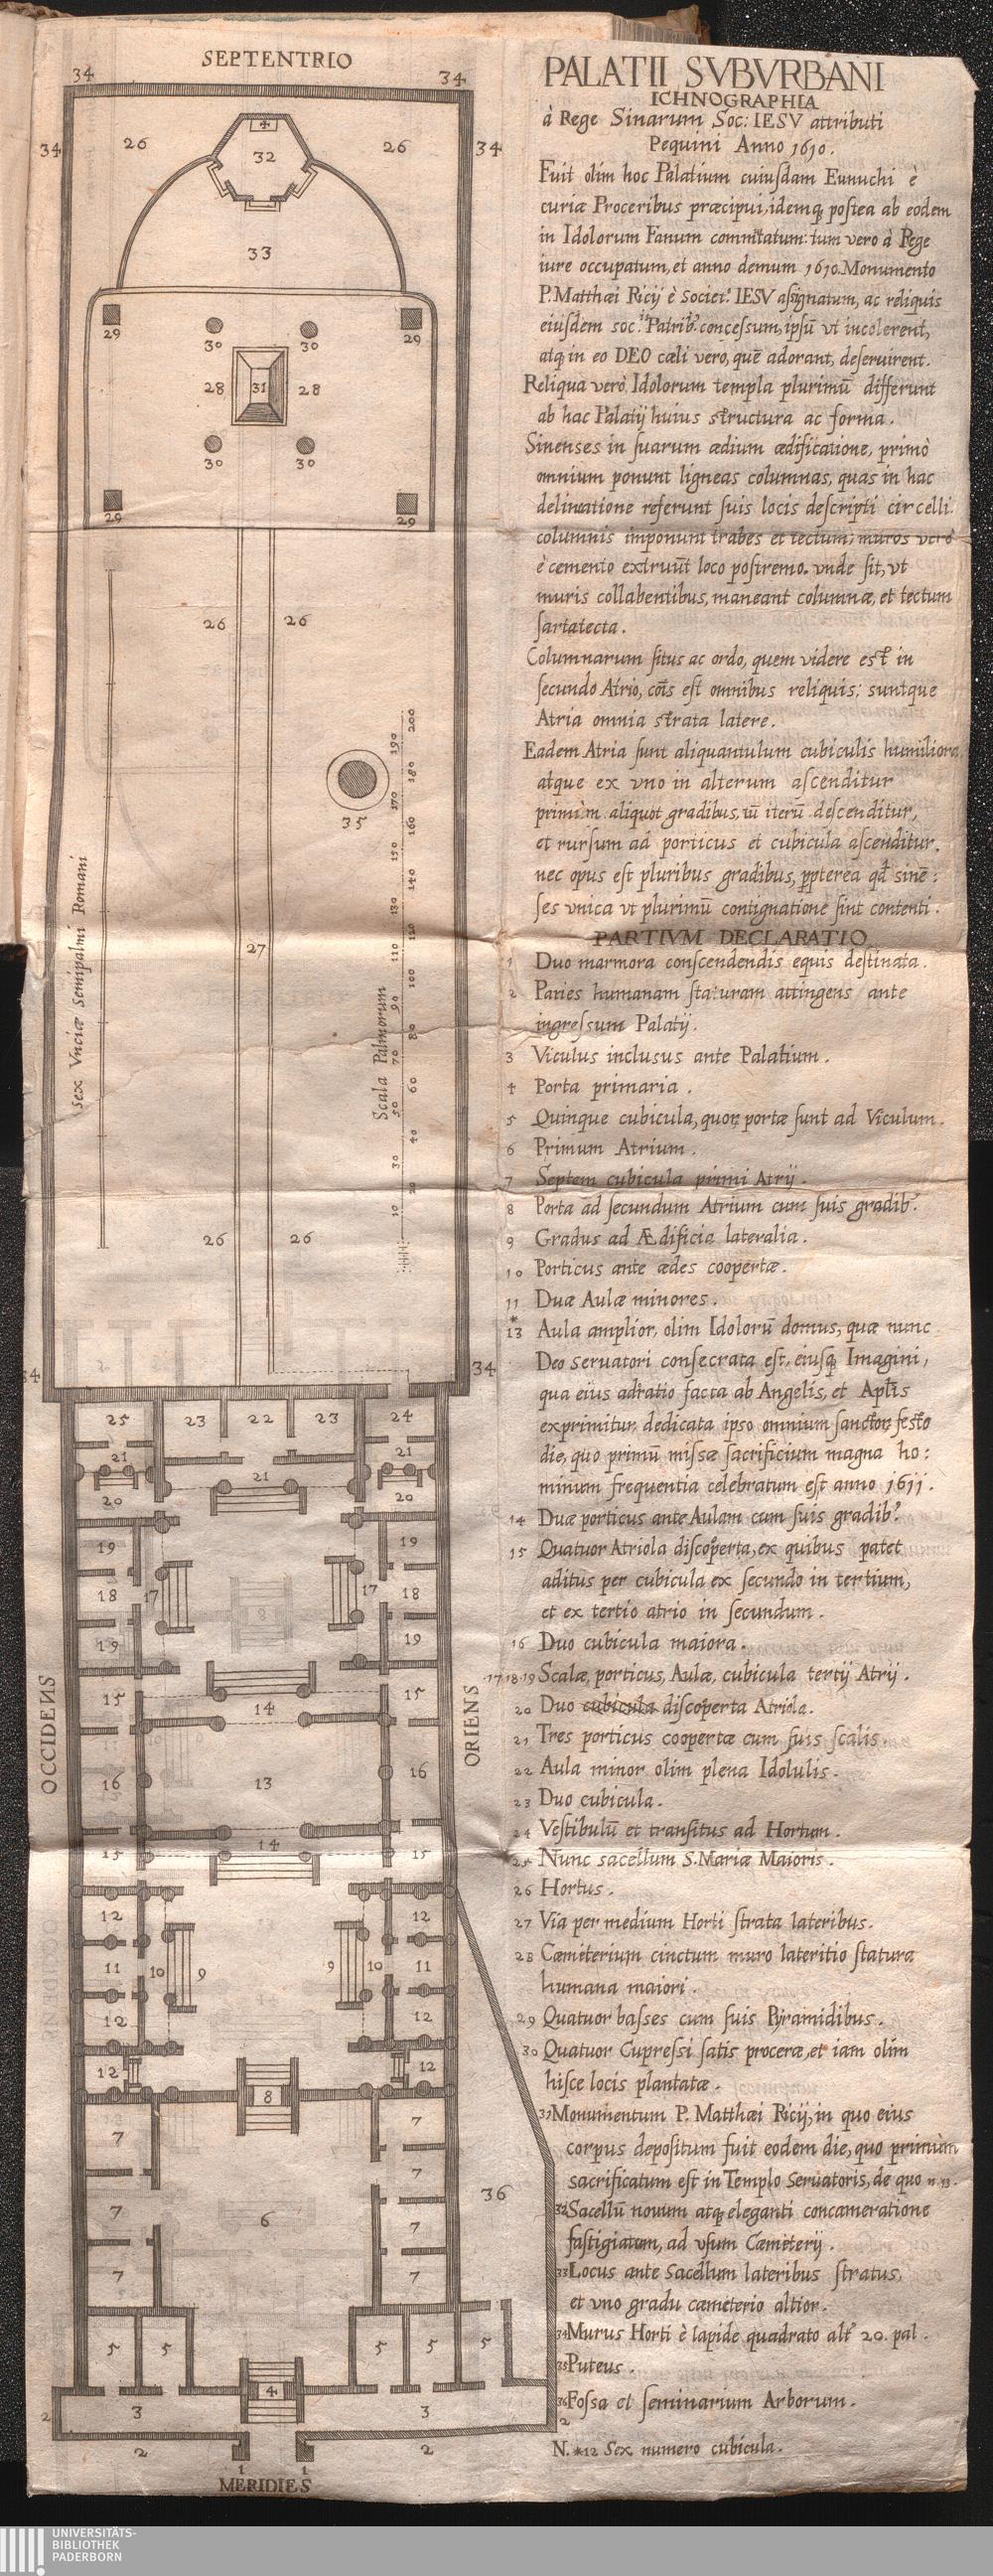 SEPTENTRIO
34
34
34
26
26
34
32
33
29
30
30
29
28
31
28
30
30
29
29
26
26
35
27
Sex Vnciæ Semipalmi Romani
Scala Palmorum
10 20 30 40 50 60 70 80 90 100 110 120 130 140 150 160 170 180 190 200
26
26
34
34
25
23
22
23
24
21
21
21
20
20
19
19
18
17
17
18
8
19
19
15
14
15
16
13
16
15
14
15
12
12
11
10
9
9
10
11
12
12
12
8
12
7
7
7
7
6
7
7
7
36
5
5
5
5
5
4
2
3
3
2
2
2
1
1
OCCIDENS
ORIENS
MERIDIES
PALATII SVBVRBANI
ICHNOGRAPHIA
à Rege Sinarum Soc: IESV attributi
Pequini Anno 1610.
Fuit olim hoc Palatium cuiusdam Eunuchi è
curiæ Proceribus præcipui, idemq; postea ab eodem
in Idolorum Fanum commutatum: tum vero à Rege
iure occupatum, et anno demum 1610. Monumento
P. Matthæi Ricij è Societ. IESV assignatum, ac reliquis
eiusdem soc. Patrib. concessum, ipsũ vt incolerent,
atq; in eo DEO cæli vero, quẽ adorant, deseruirent.
Reliqua verò Idolorum templa plurimũ differunt
ab hac Palatij huius structura ac forma.
Sinenses in suarum ædium ædificatione, primò
omnium ponunt ligneas columnas, quas in hac
delineatione referunt suis locis descripti circelli.
columnis imponunt trabes et tectum; muros verò
è cemento extruũt loco postremo. vnde fit, vt
muris collabentibus, maneant columnæ, et tectum
sartatecta.
Columnarum situs ac ordo, quem videre est in
secundo Atrio, cõis est omnibus reliquis; suntque
Atria omnia strata latere.
Eadem Atria sunt aliquantulum cubiculis humiliora,
atque ex vno in alterum ascenditur
primùm aliquot gradibus, tũ iterũ descenditur,
et rursum ad porticus et cubicula ascenditur,
nec opus est pluribus gradibus, ppterea qd sinẽ:
ses vnica vt plurimũ contignatione sint contenti.
PARTIVM DECLARATIO
1 Duo marmora conscendendis equis destinata.
2 Paries humanam staturam attingens ante
ingressum Palatij.
3 Viculus inclusus ante Palatium.
4 Porta primaria.
5 Quinque cubicula, quor; portæ sunt ad Viculum.
6 Primum Atrium.
7 Septem cubicula primi Atrij.
8 Porta ad secundum Atrium cum suis gradib.
9 Gradus ad Ædificia lateralia.
10 Porticus ante ædes coopertæ.
11 Duæ Aulæ minores.
*
13 Aula amplior, olim Idolorũ domus, quæ nunc
Deo seruatori consecrata est, eiusq; Imagini,
qua eius adratio facta ab Angelis, et Aplis
exprimitur, dedicata ipso omnium sanctor; festo
die, quo primũ missæ sacrificium magna ho:
minum frequentia celebratum est anno 1611.
14 Duæ porticus ante Aulam cum suis gradib.
15 Quatuor Atriola discoperta, ex quibus patet
aditus per cubicula ex secundo in tertium,
et ex tertio atrio in secundum.
16 Duo cubicula maiora.
17 18 19 Scalæ, porticus, Aulæ, cubicula tertij Atrij.
20 Duo cubicula discoperta Atriola.
21 Tres porticus coopertæ cum suis scalis.
22 Aula minor olim plena Idolulis.
23 Duo cubicula.
24 Vestibulũ et transitus ad Hortum.
25 Nunc sacellum S. Mariæ Maioris.
26 Hortus.
27 Via per medium Horti strata lateribus.
28 Cæmeterium cinctum muro lateritio statura
humana maiori.
29 Quatuor basses cum suis Pyramidibus.
30 Quatuor Cupressi satis proceræ, et iam olim
hisce locis plantatæ.
31 Monumentum P. Matthæi Ricij, in quo eius
corpus depositum fuit eodem die, quo primùm
sacrificatum est in Templo Seruatoris, de quo n 13.
32 Sacellũ nouum atq; eleganti concameratione
fastigiatum, ad vsum Cæmeterij.
33 Locus ante Sacellum lateribus stratus,
et vno gradu cæmeterio altior.
34 Murus Horti è lapide quadrato alt 20. pal.
35 Puteus.
36 Fossa et seminarium Arborum.
N. *12 Sex numero cubicula.
UNIVERSITÄTS-
BIBLIOTHEK
PADERBORN